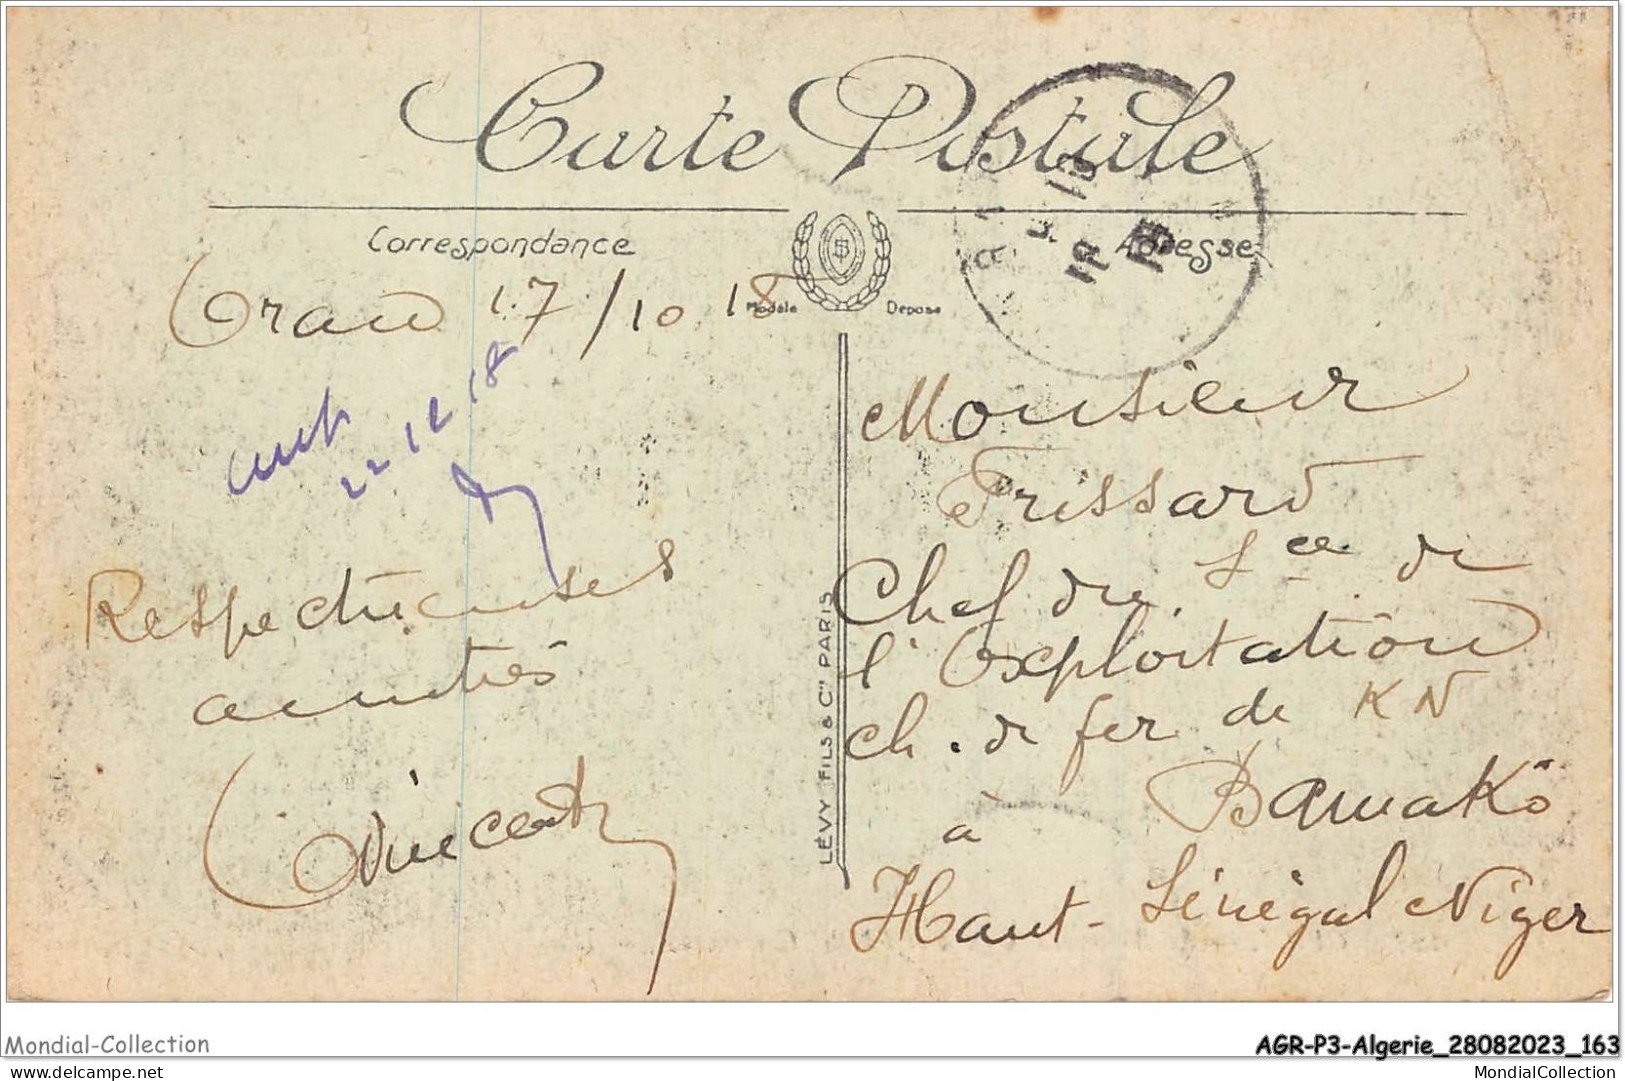 Carte Postale
Correspondance
Adresse
Modèle Déposé
Oran 17/10 18
22 12 18
Respectueuses
amitiés
Vincent
LÉVY FILS & Cie PARIS
Monsieur
Frissard
Chef du Sce de
l'Exploitation
ch. de fer de KN
à Bamako
Haut-Sénégal Niger
Mondial-Collection
AGR-P3-Algerie_28082023_163
MondialCollection